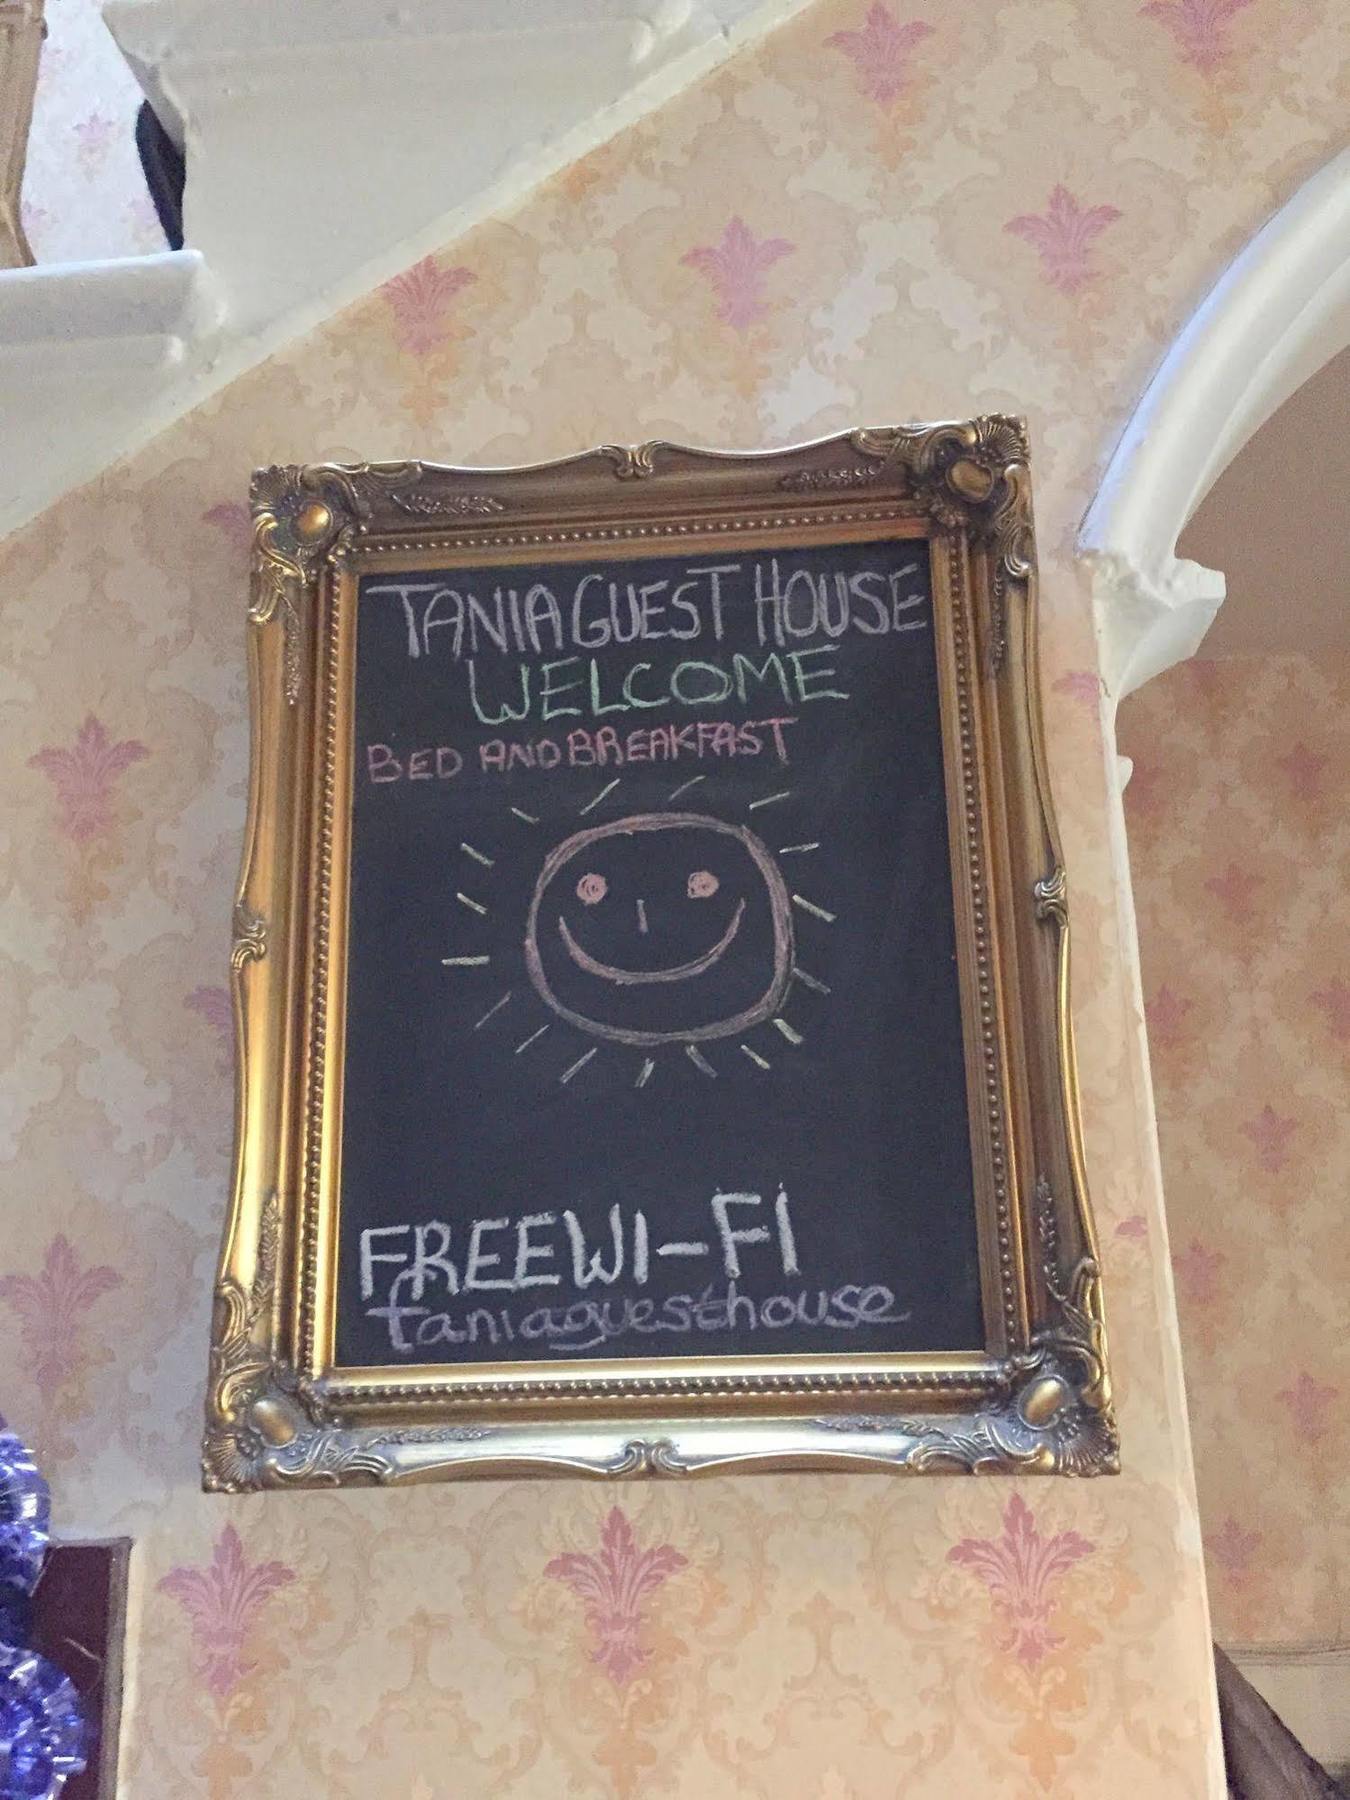 TANIA GUEST HOUSE
WELCOME
BED AND BREAKFAST
FREE WI-FI
taniaguesthouse